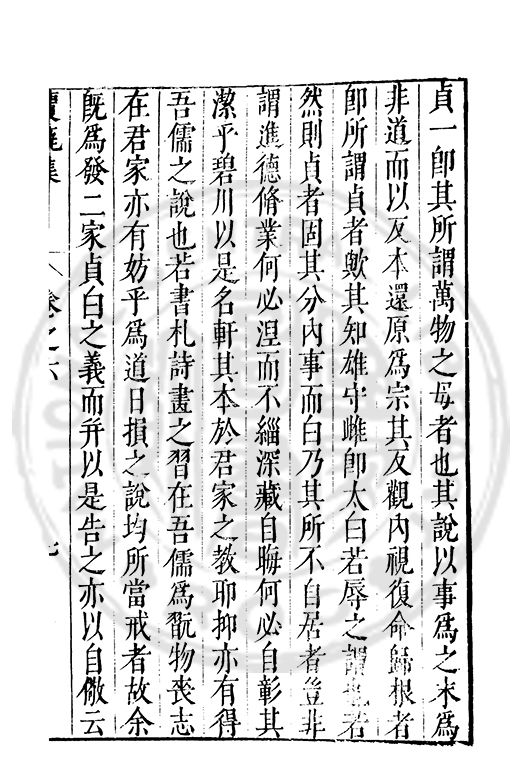 貞一卽其所謂萬物之母者也其說以事爲之末爲
非道而以反本還原爲宗其反觀內視復命歸根者
卽所謂貞者歟其知雄守雌卽太白若辱之謂也若
然則貞者固其分內事而白乃其所不自居者豈非
謂進德脩業何必涅而不緇深藏自晦何必自彰其
潔乎碧川以是名軒其本於君家之敎耶抑亦有得
吾儒之說也若書札詩畫之習在吾儒爲翫物喪志
在君家亦有妨乎爲道日損之說均所當戒者故余
旣爲發二家貞白之義而幷以是告之亦以自儆云
集 卷之六